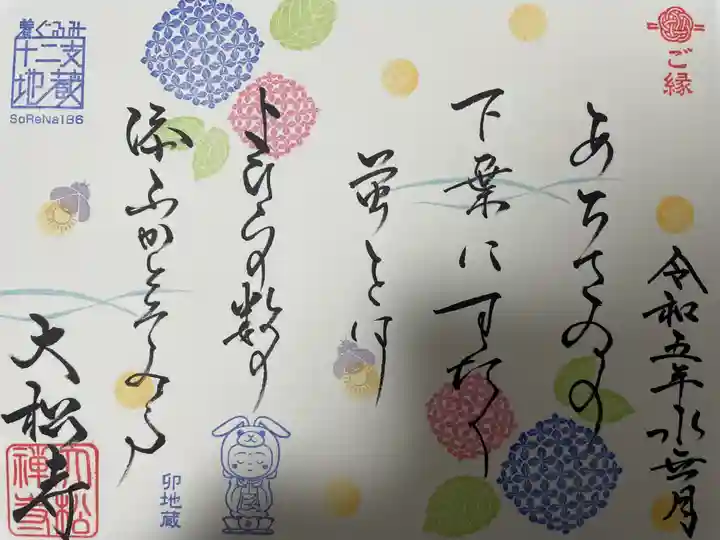 ご縁
令和五年水無月
あちさゐの
下葉にすたく
蛍をは
よひらの数の
添ふかとそみる
大松寺
大松
禅寺
卯地蔵
着ぐるみ
十二支
地蔵
SoReNa186